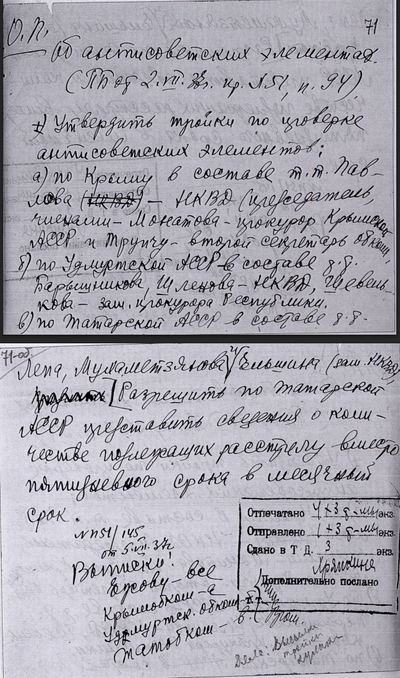 О. П.
71
Об антисоветских элементах
(ПБ от 2.VII.37г. пр. №51, п. 94).
1) Утвердить тройки по проверке
антисоветских элементов:
а) по Крыму в составе т.т. Пав-
лова (НКВД) – НКВД (председатель,
члены – Монатова – прокурор Крымской
АССР и Трупчу – второй секретарь обкома,
б) по Удмуртской АССР в составе т.т.
Барышникова, Шленова – НКВД, Шевель-
кова – зам. прокурора Республики.
в) по Татарской АССР в составе т.т.
71-об.
Лепа, Мухаметзянова и Ельшина (зам. НКВД)
Разрешить по Татарской
АССР представить сведения о коли-
честве подлежащих расстрелу вместо
пятидневного срока в месячный
срок.
№ П51/145
от 5.VII.37г.
Выписки:
Ежову – все
Крымобком – а
Удмуртск. обком – б
Татобком – в
Отпечатано 4+3 экз.
Отправлено 1+3 экз.
Сдано в Т. Д. 3 экз.
Хряпкина
Дополнительно послано
Дело: